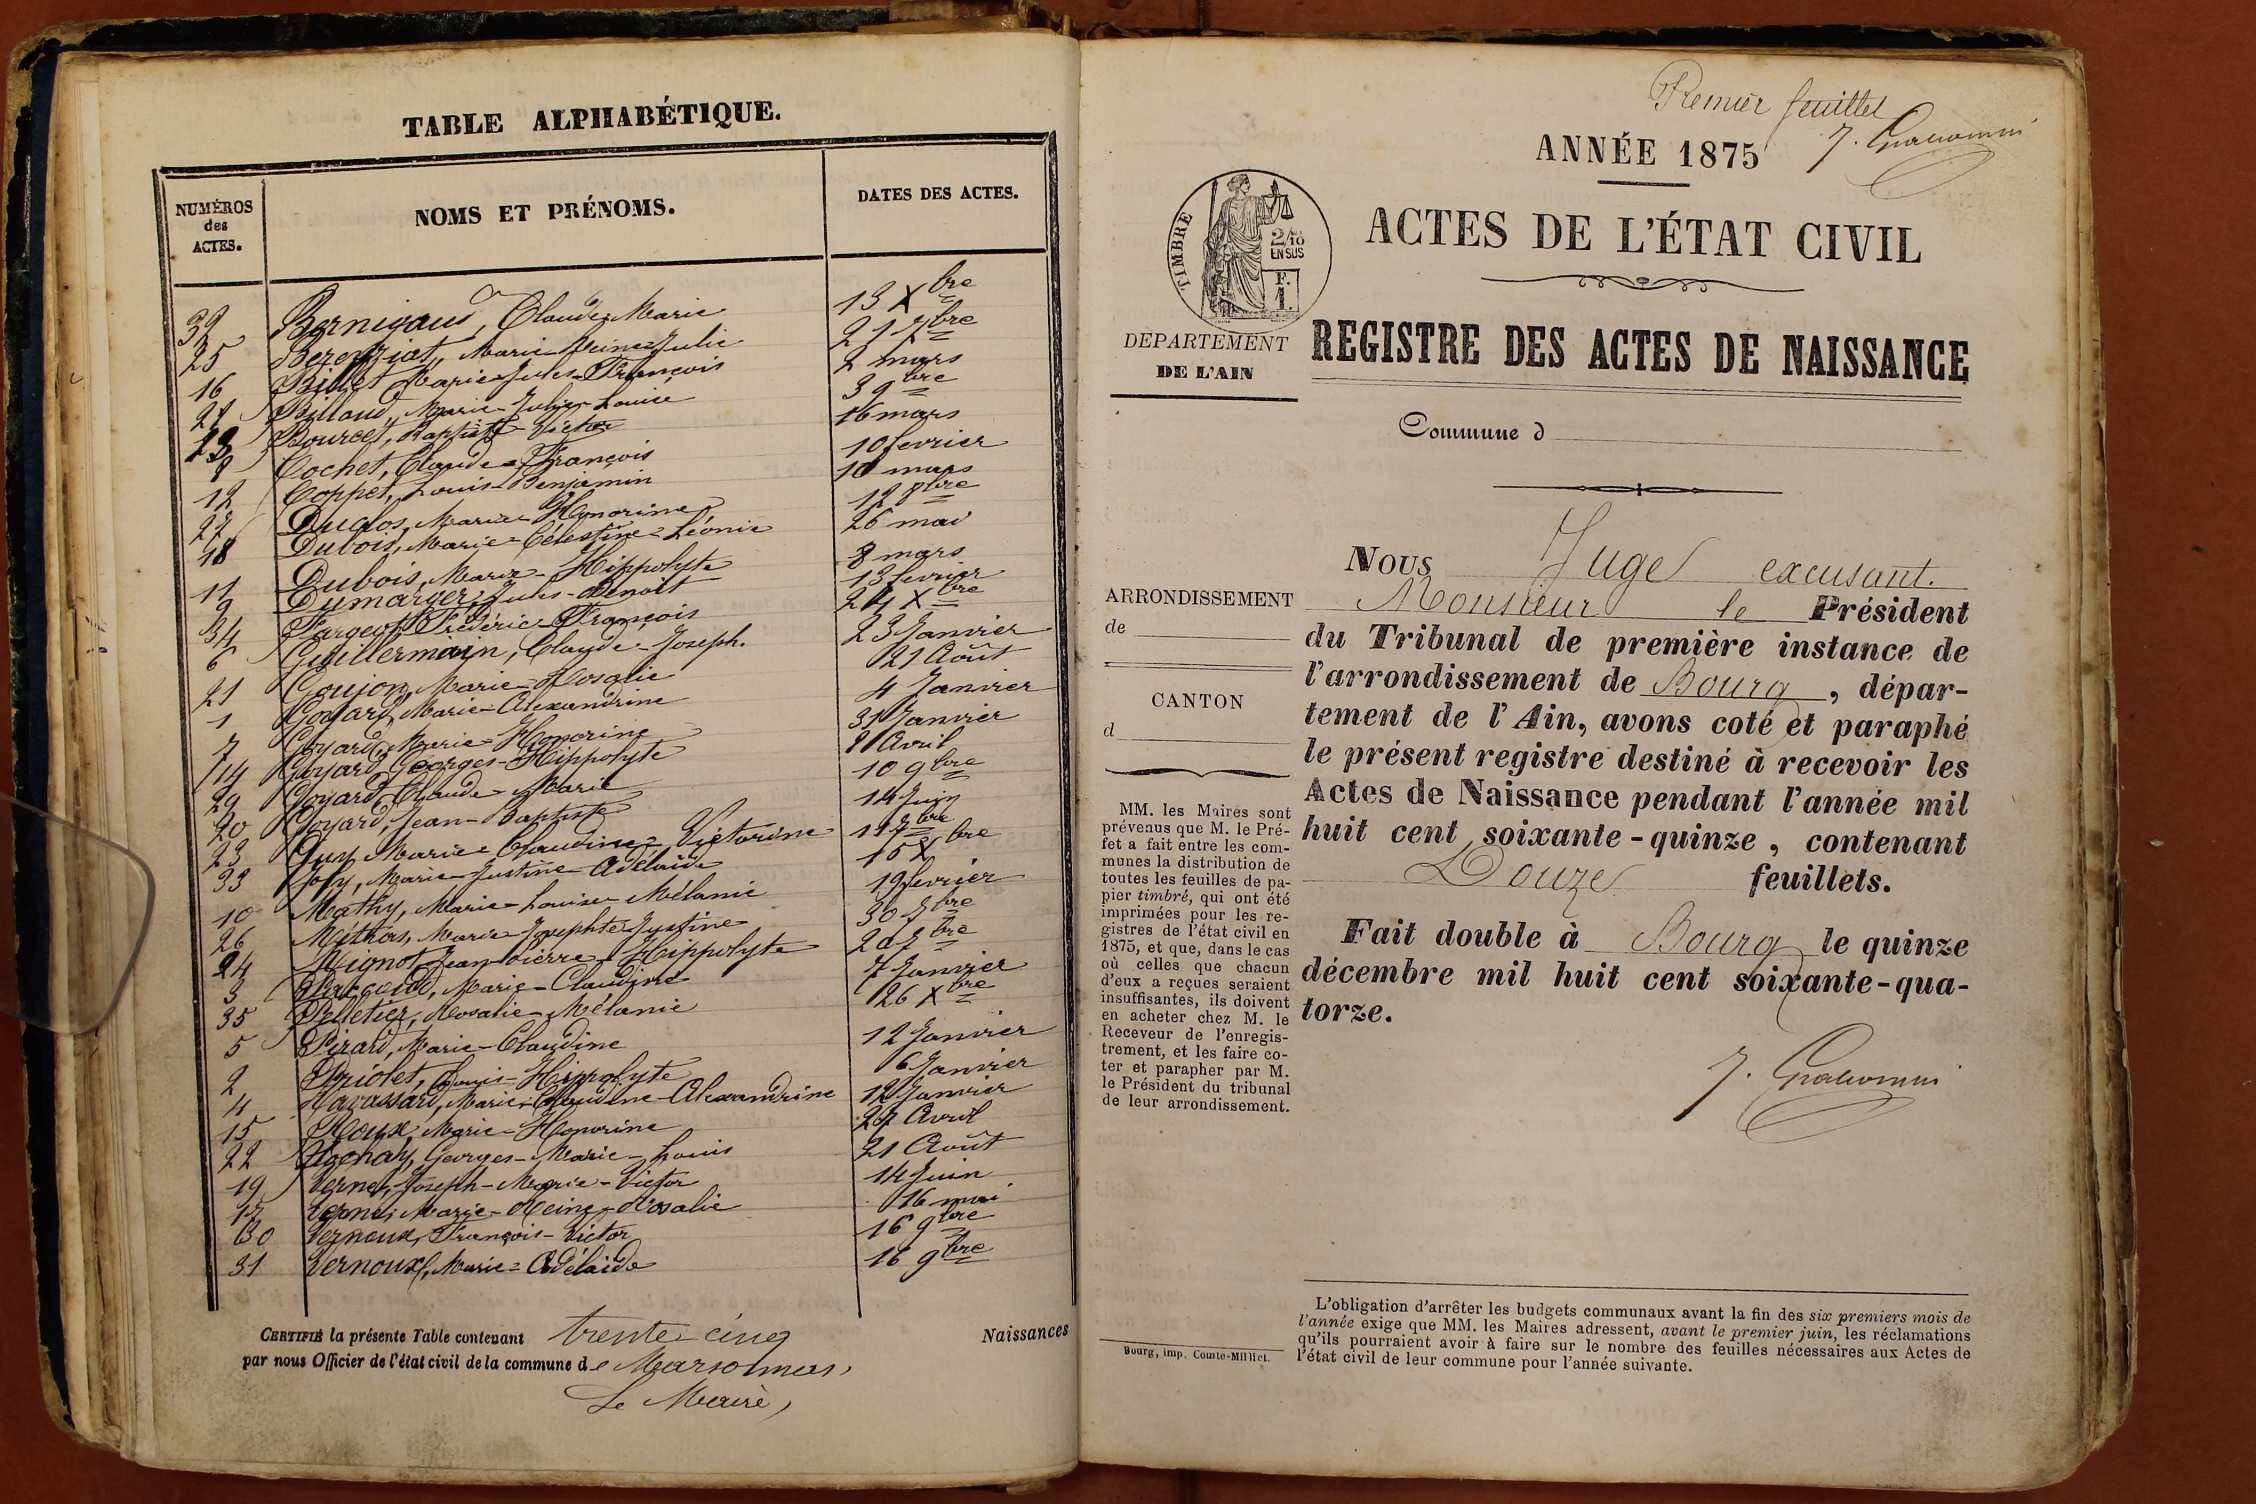 TABLE ALPHABÉTIQUE.
NUMÉROS des ACTES.
NOMS ET PRÉNOMS.
DATES DES ACTES.
32 Bernigaud, Claude Marie 13 Xbre
25 Marie-Reine-Julie 21 7bre
16 Billet Marie-Jules-François 2 mars
Billoud, Marie-Julie-Louise 3 9bre
13 Bourcet, Baptiste-Victor 16 mars
8 Cochet, Claude-François 10 fevrier
12 Coppet, Louis-Benjamin 10 mars
27 Duclos, Marie-Honorine 12 8bre
18 Dubois, Marie-Célestine-Léonie 26 mai
11 Dubois, Marie-Hippolyte 8 mars
9 Dumarger, Jules-Benoît 13 fevrier
34 Fargeot Frédéric-François 24 Xbre
6 Guillermain, Claude-Joseph. 23 Janvier
21 Goujon, Marie-Rosalie 21 Août
1 Goyard, Marie-Alexandrine 4 Janvier
7 Goyard, Marie-Honorine 31 Janvier
14 Goyard, Georges-Hippolyte 8 Avril
29 Goyard, Claude-Marie 10 9bre
20 Goyard, Jean-Baptiste 14 Juin
23 Guy Marie-Claudine-Victorine 11 7bre
33 Joly, Marie-Justine-Adélaïde 15 Xbre
10 Mathy, Marie-Louise-Mélanie 19 fevrier
26 Marie-Josephte-Justine 30 7bre
24 Mignot, Jean-Pierre-Hippolyte 20 7bre
3 Marie-Claudine 7 Janvier
35 Pelletier, Rosalie-Mélanie 26 Xbre
5 Pirard, Marie-Claudine 12 Janvier
2 Priolet, Louis-Hippolyte 6 Janvier
4 Ravassard, Marie-Claudine-Alexandrine 12 Janvier
15 Roux, Marie-Honorine 27 Avril
22 Georges-Marie-Louis 21 Août
19 Vernet, Joseph-Marie-Victor 14 Juin
17 Marie-Reine-Rosalie 16 mai
30 Verneux, François-Victor 16 9bre
31 Vernoux, Marie-Adélaïde 16 9bre
CERTIFIÉ la présente Table contenant trente cinq Naissances
par nous Officier de l'état civil de la commune de Marsonnas,
Le Maire,
Premier feuillet
ANNÉE 1875
ACTES DE L'ÉTAT CIVIL
TIMBRE
2/10
EN SUS
F.
1.
DÉPARTEMENT
DE L'AIN
REGISTRE DES ACTES DE NAISSANCE
Commune d
Nous Juge excusant.
Monsieur le Président
du Tribunal de première instance de
l'arrondissement de Bourg, dépar-
tement de l'Ain, avons coté et paraphé
le présent registre destiné à recevoir les
Actes de Naissance pendant l'année mil
huit cent soixante-quinze, contenant
Douze feuillets.
Fait double à Bourg le quinze
décembre mil huit cent soixante-qua-
torze.
ARRONDISSEMENT
de
CANTON
d
MM. les Maires sont
prévenus que M. le Pré-
fet a fait entre les com-
munes la distribution de
toutes les feuilles de pa-
pier timbré, qui ont été
imprimées pour les re-
gistres de l'état civil en
1875, et que, dans le cas
où celles que chacun
d'eux a reçues seraient
insuffisantes, ils doivent
en acheter chez M. le
Receveur de l'enregis-
trement, et les faire co-
ter et parapher par M.
le Président du tribunal
de leur arrondissement.
Bourg, imp. Comte-Milliet.
L'obligation d'arrêter les budgets communaux avant la fin des six premiers mois de
l'année exige que MM. les Maires adressent, avant le premier juin, les réclamations
qu'ils pourraient avoir à faire sur le nombre des feuilles nécessaires aux Actes de
l'état civil de leur commune pour l'année suivante.